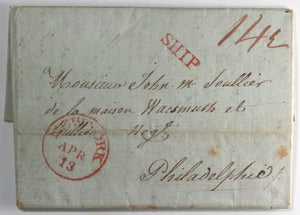 SHIP
14½
Monsieur John. m. Soullier
de la maison Wacsmuth et
Soullier Negt
NEW YORK
APR
13
Philadelphie